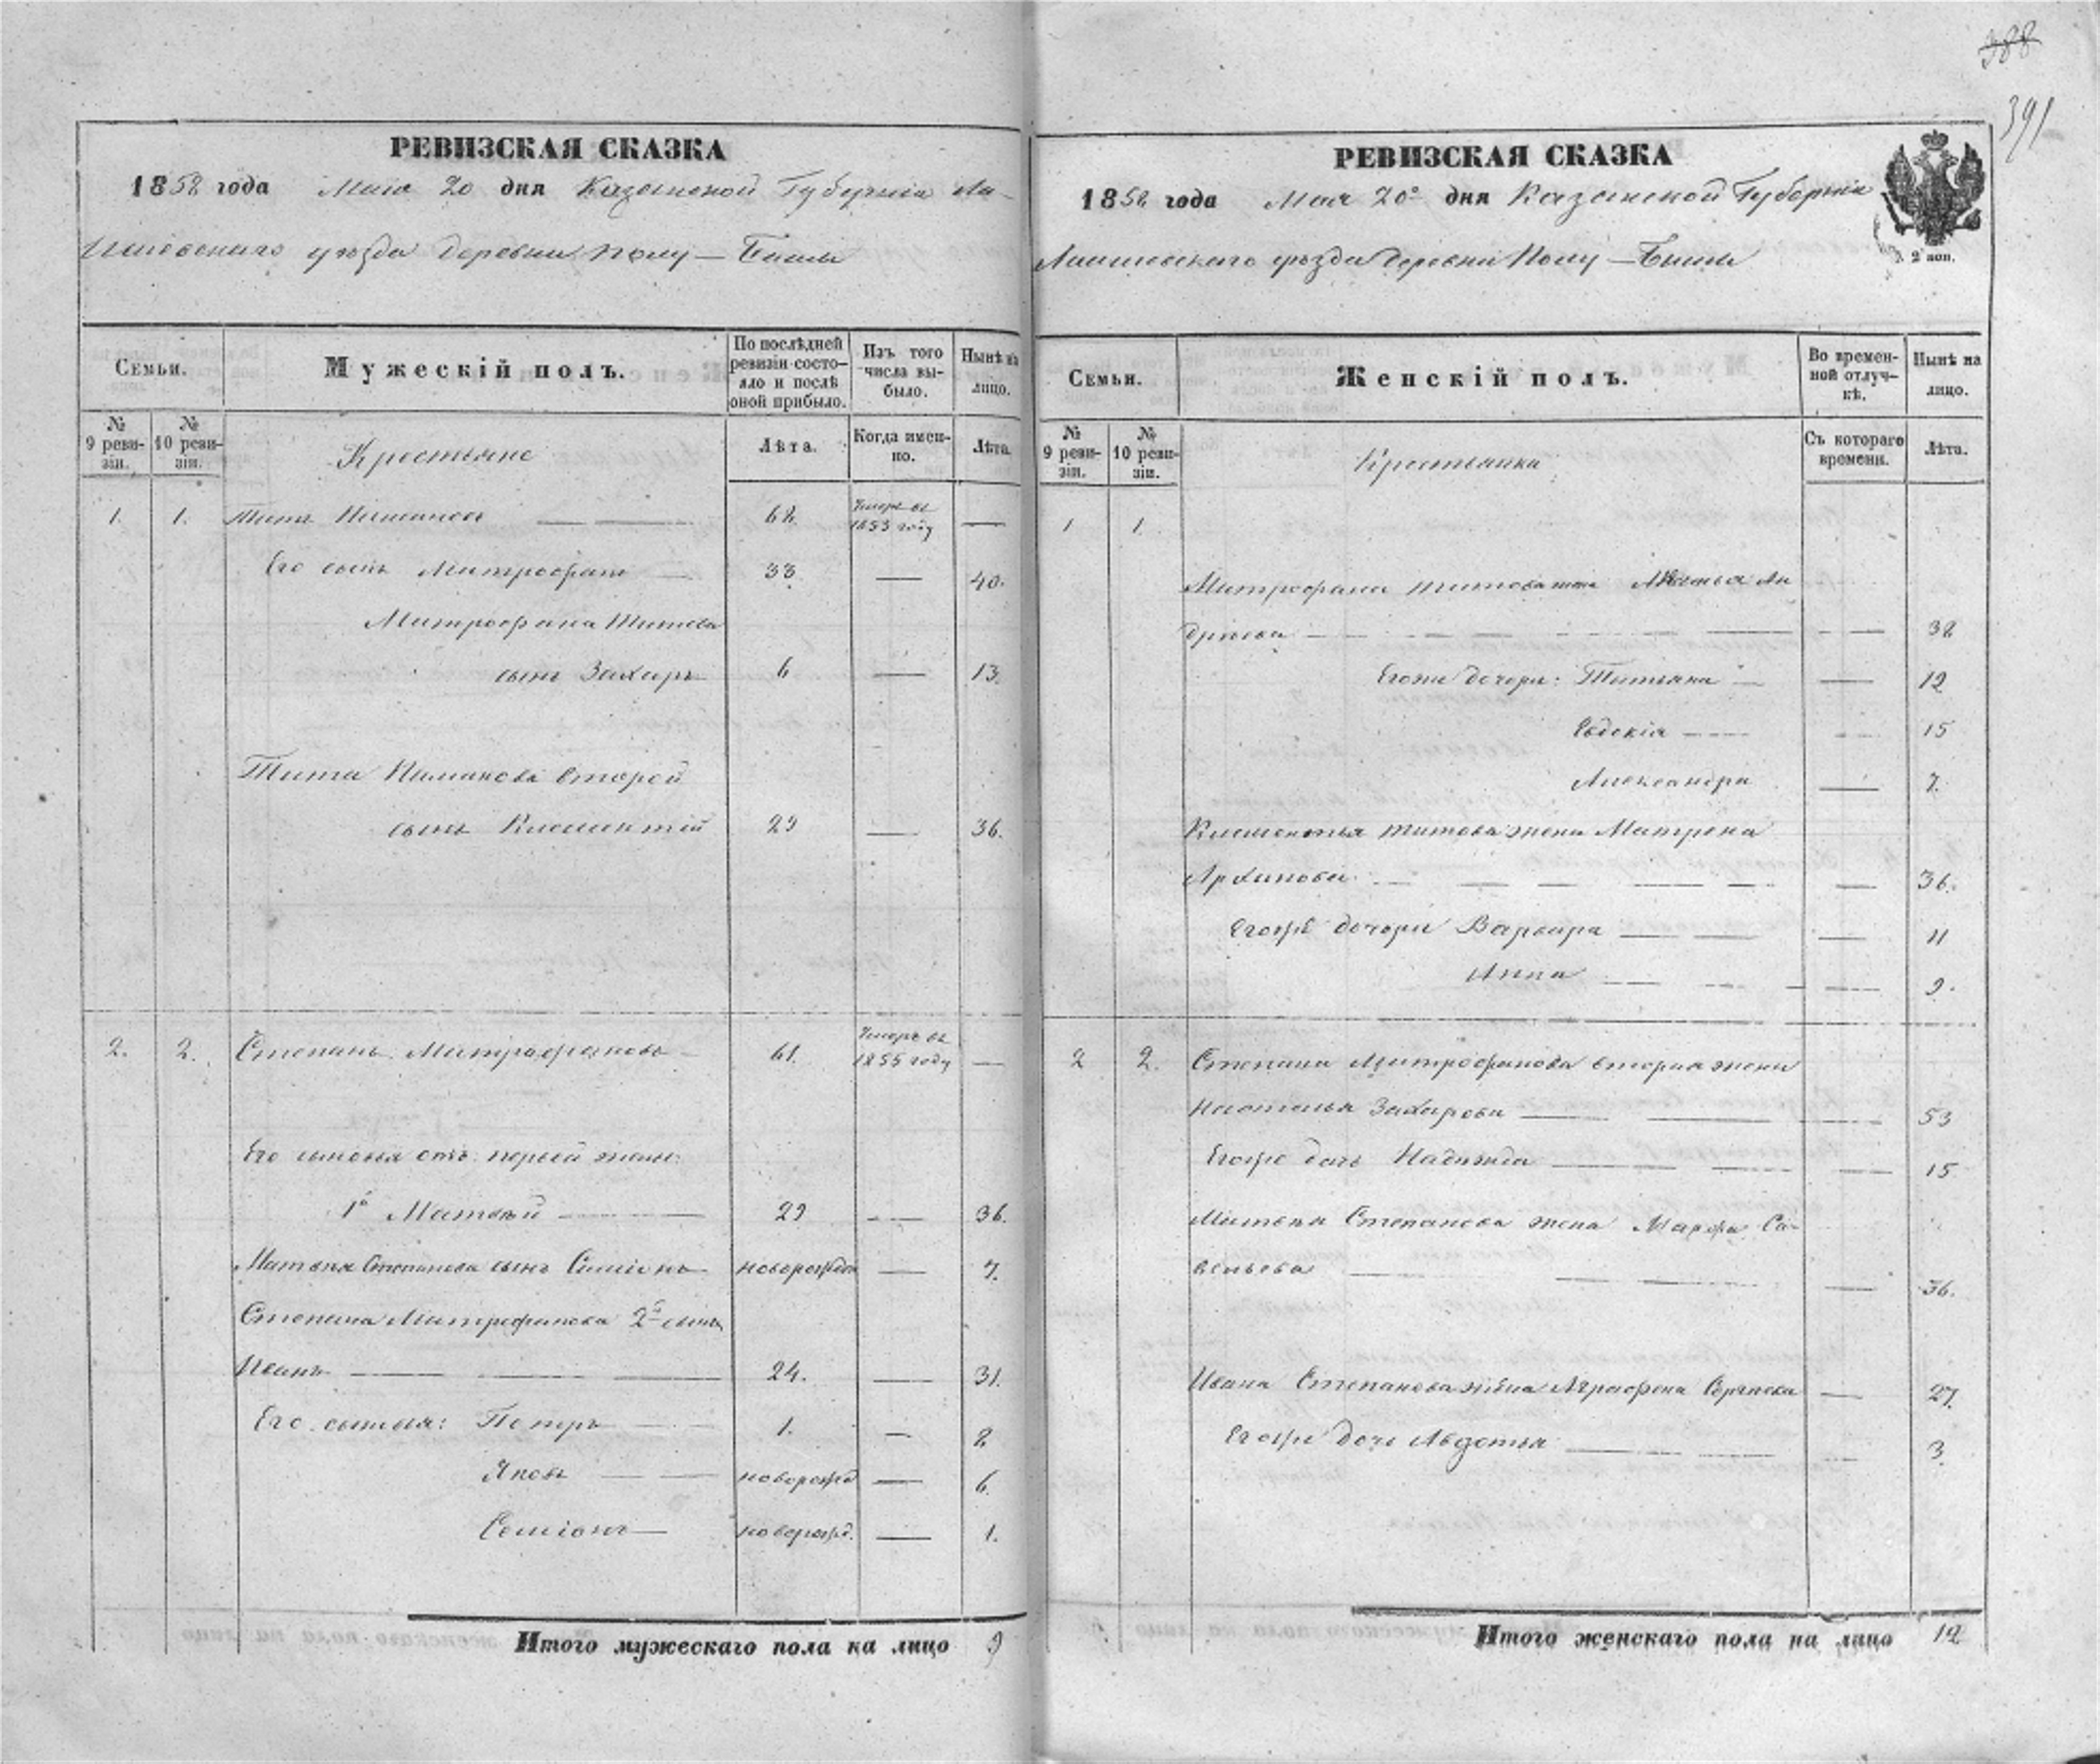 388
391
РЕВИЗСКАЯ СКАЗКА
1858 года Мая 20 дня Казанской Губерніи Ла-
ишевскаго уѣзда деревни Полу-
Семьи.
Мужескій полъ.
По послѣдней ревизіи состо-
яло и послѣ
оной прибыло.
Изъ того
числа вы-
было.
Нынѣ на
лицо.
№
9 реви-
зіи.
№
10 реви-
зіи.
Крестьяне
Лѣта.
Когда имен-
но.
Лѣта.
1. 1. Титъ 68. въ
1853 году —
Его сынъ Митрофанъ — 33. — 40.
Митрофана Титова
сынъ Захаръ 6 — 13.
Тита второй
сынъ Климентій 29 — 36.
2. 2. Степанъ Митрофановъ 61. въ
1855 году —
Его сыновья отъ первой жены:
1й Матвѣй — 29 — 36.
Матвѣя Степанова сынъ новорожден — 7.
Степана Митрофанова 2й сынъ
Иванъ — 24. — 31.
Его сыновья: Петръ 1. — 8
Яковъ — новорожд — 6.
Семіонъ — новорожд. — 1.
Итого мужескаго пола на лицо 9
РЕВИЗСКАЯ СКАЗКА
1858 года Мая 20 дня Казанской Губерніи
Лаишевскаго уѣзда деревни Полу-
2 коп.
Семьи.
Женскій полъ.
Во времен-
ной отлуч-
кѣ.
Нынѣ на
лицо.
№
9 реви-
зіи.
№
10 реви-
зіи.
Крестьянки
Съ котораго
времени.
Лѣта.
1 1.
Митрофана Титова жена Ан
дрѣева — — 38
Его же дочери: Татьяна — — 12
Евдокія — — 15
Александра — 7.
Климентья Титова жена Матрена
Архипова — — 36.
Его же дочери Варвара — — 11
Анна — — 9.
2 2. Степана Митрофанова вторая жена
Наталья Захарова — — 53
Его же дочь Надежда — — 15
Матвѣя Степанова жена Марфа Са-
вельева — — 36.
Ивана Степанова жена Аграфена Сергѣева — 27.
Его же дочь Авдотья — — 3.
Итого женскаго пола на лицо 12